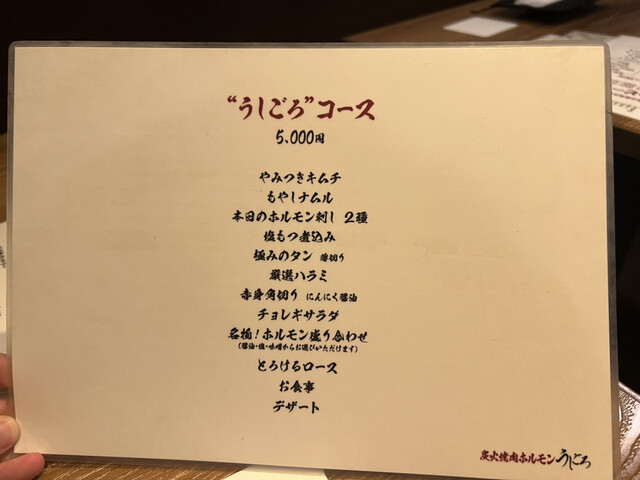 “うしごろ”コース
5,000円
やみつきキムチ
もやしナムル
本日のホルモン刺し 2種
塩もつ煮込み
極みのタン 薄切り
厳選ハラミ
赤身角切り にんにく醤油
チョレギサラダ
名物！ホルモン盛り合わせ
(醤油・塩・味噌からお選びいただけます)
とろけるロース
お食事
デザート
炭火焼肉ホルモン うしごろ